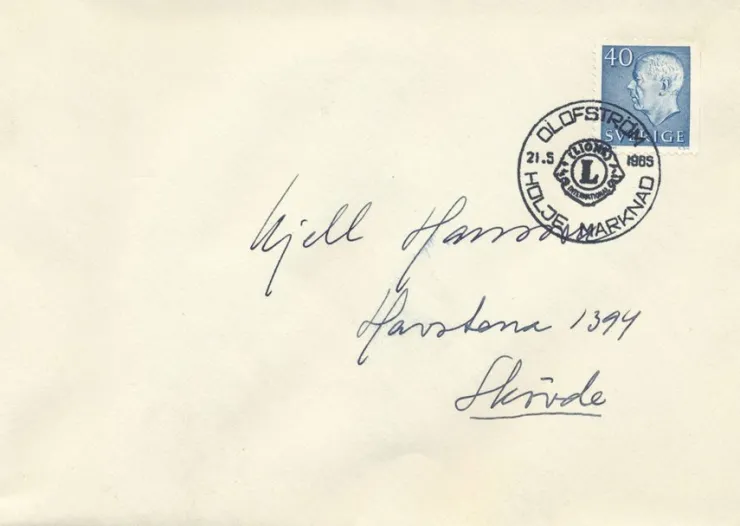 40
SVERIGE
OLOFSTRÖM
21.5 1965
LIONS
L
INTERNATIONAL
HOLJE MARKNAD
Kjell Hansson
Havstena 1394
Skövde